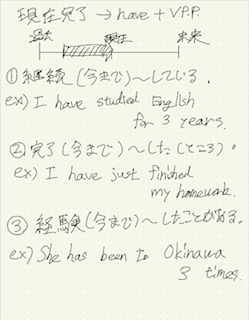 現在完了 → have + V P.P.
過去 現在 未来
① 継続 (今まで) ～している.
ex) I have studied English
for 3 years.
② 完了 (今まで) ～した (ところ).
ex) I have just finished
my homework.
③ 経験 (今まで) ～したことがある。
ex) She has been to Okinawa
3 times.